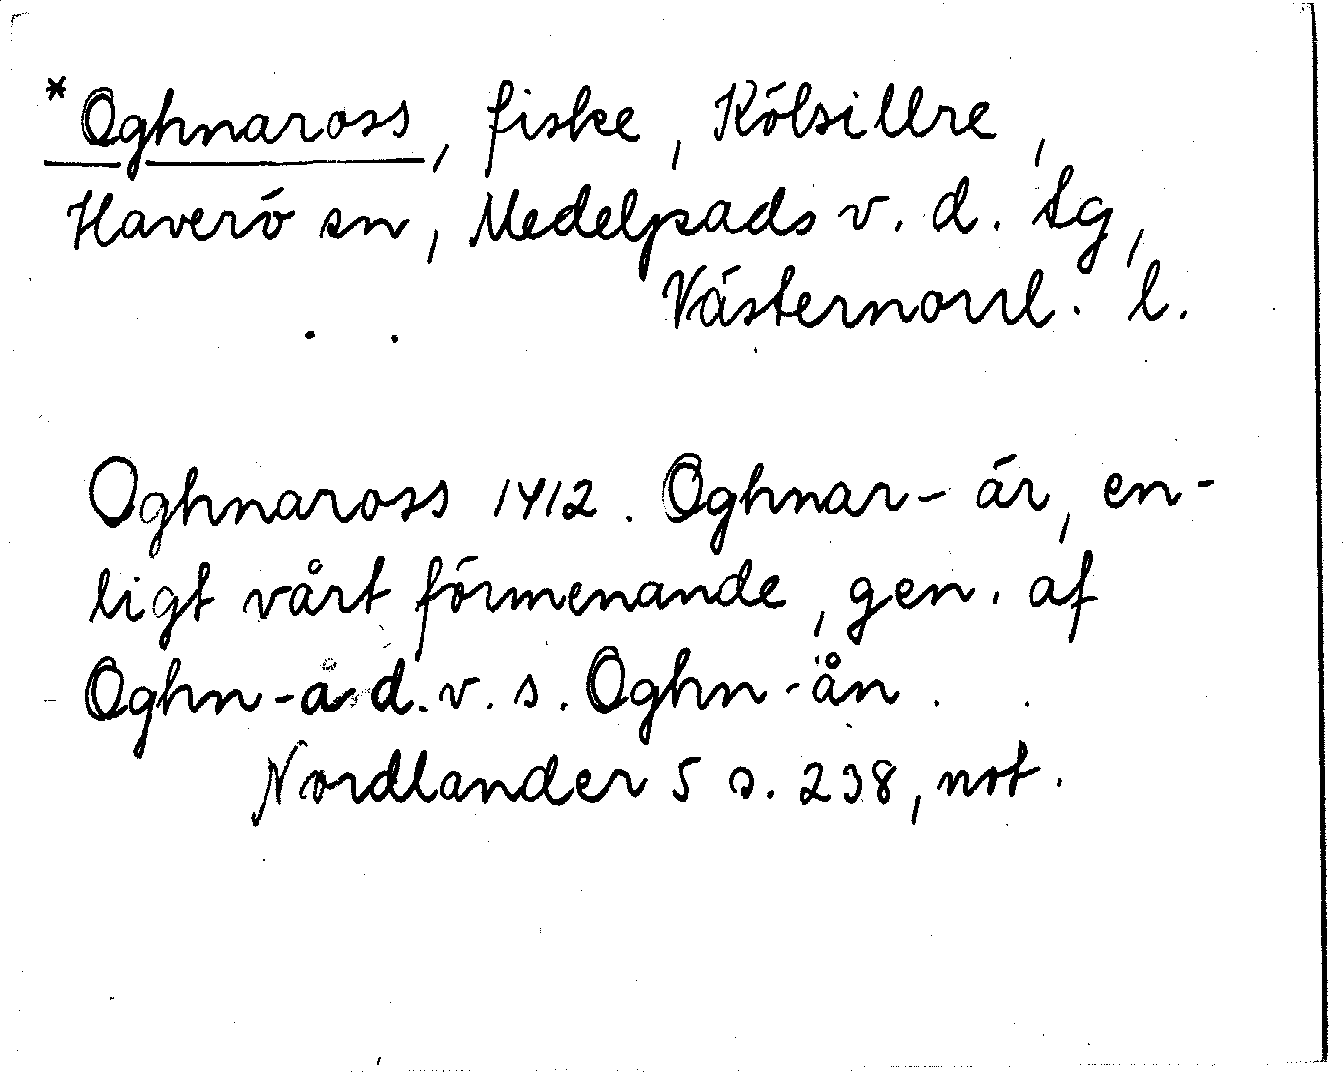 *Oghnaross, fiske, Kölsillre,
Haverö sn, Medelpads v. d. tg,
Västernorrl. l.
Oghnaross 1412. Oghnar- är, en-
ligt vårt förmenande, gen. af
Oghn-å d.v.s. Oghn-ån.
Nordlander 5 s. 238, not.